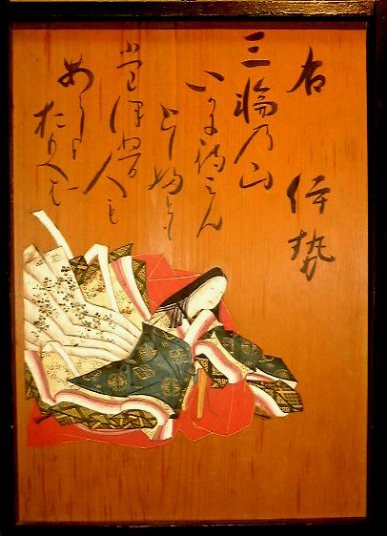 右 伊勢
三輪乃山
いかに待みん
としふとも
たつぬる人も
あらしと
おもへは